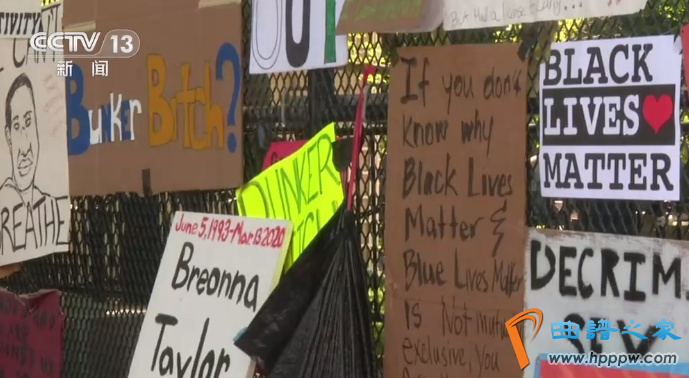 CCTV 13
新闻
BREATHE
Bunker
Bitch?
OUT
BUNKER
June 5, 1993-Mar 13 2020
Breonna
Taylor
If you don't
know why
Black Lives
Matter &
Blue Lives Matter
Is Not mut
exclusive, You
BLACK
LIVES
MATTER
DECRIM
曲谱之家
www.hppw.com